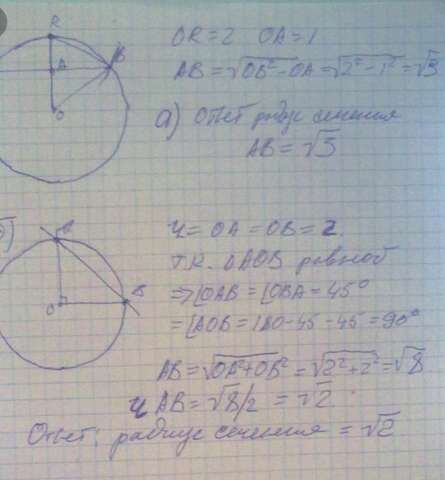 R
OR=2 OA=1
A
B
AB=√OB²-OA=√2²-1²=√3
O
а) Ответ радиус сечения
AB=√3
б)
A
Ч=OA=OB=2
т.к. OAOB равноб
⇒[OAB=[OBA=45°
=[AOB=180-45-45=90°
O
B
AB=√OA²+OB²=√2²+2²=√8
Ч AB=√8/2=√2
Ответ: радиус сечения =√2